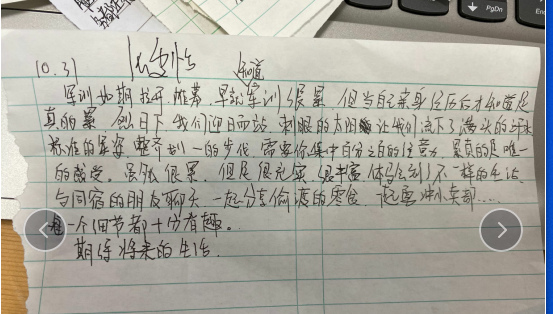 10.31
知道
军训如期拉开帷幕，早就知道军训很累，但当自己亲身经历后才知道是
真的累，烈日下我们迎日而站，刺眼的太阳让我们流下了满头的汗水
标准的军姿，整齐划一的步伐，需要你集中百分之百的注意力，累真的是唯一
的感受。虽然很累，但是很充实，很丰富，体验到了不一样的生活，
与同宿的朋友聊天，一起分享偷渡的零食，一起要冲小卖部……
每一个细节都十分有趣。
期待将来的生活.
PgDn